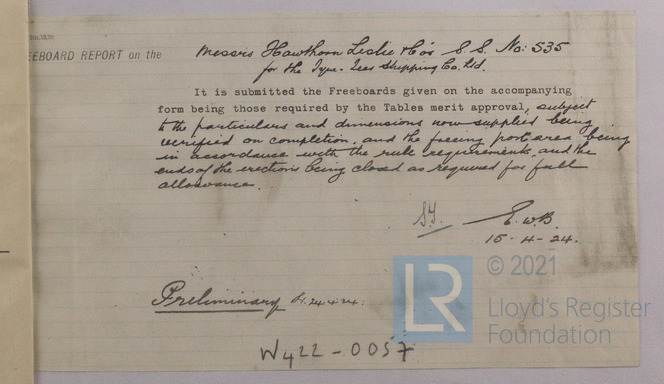 EEBOARD REPORT on the Messrs Hawthorn Leslie & Co's S.S. No: 535
for the Tyne-Tees Shipping Co. Ltd.
It is submitted the Freeboards given on the accompanying
form being those required by the Tables merit approval, subject
to the particulars and dimensions now supplied being
verified on completion, and the freeing port area being
in accordance with the rule requirements, and the
ends of the erections being closed as required for full
allowance.
E.W.B.
15-4-24.
Preliminary 24.4.24.
W422-0057
LR
© 2021
Lloyd's Register
Foundation